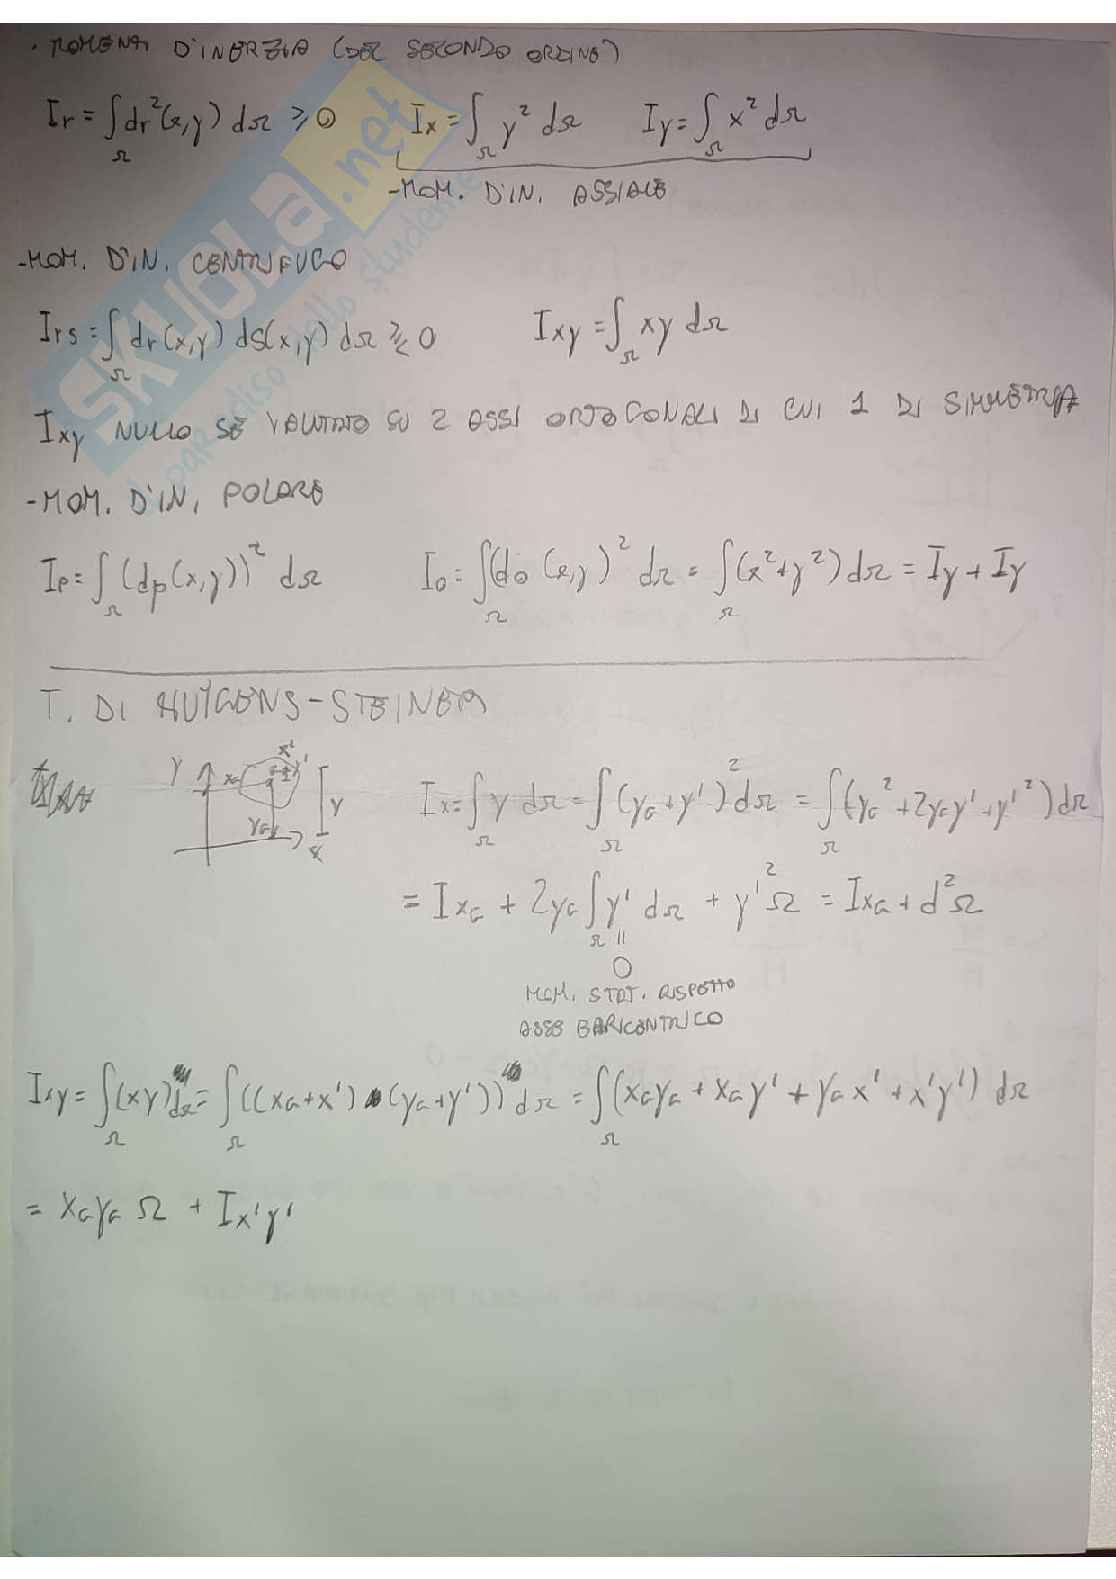 · MOMENTI D'INERZIA (DEL SECONDO ORDINE)
Ir = ∫Ω dr²(x,y) dΩ ≥ 0   Ix = ∫Ω y² dΩ   Iy = ∫Ω x² dΩ
-MOM. D'IN. ASSIALE
-MOM. D'IN. CENTRIFUGO
Irs = ∫Ω dr(x,y) ds(x,y) dΩ ⋛ 0   Ixy = ∫Ω xy dΩ
Ixy NULLO SE VALUTATO SU 2 ASSI ORTOGONALI DI CUI 1 DI SIMMETRIA
-MOM. D'IN. POLARE
Ip = ∫Ω (dp(x,y))² dΩ   Io = ∫Ω (do(x,y))² dΩ = ∫Ω (x²+y²) dΩ = Iy + Iy
T. DI HUYGENS-STEINER
y xG x' y' y yG x
Ix = ∫Ω y dΩ = ∫Ω (yG+y')² dΩ = ∫Ω (yG²+2yGy'+y'²) dΩ
= IxG + 2yG ∫Ω y' dΩ + y'²Ω = IxG + d²Ω
=
0
MOM. STAT. RISPETTO
ASSE BARICENTRICO
Ixy = ∫Ω (xy) dΩ = ∫Ω ((xG+x') · (yG+y')) dΩ = ∫Ω (xGyG + xGy' + yGx' + x'y') dΩ
= xGyG Ω + Ix'y'
SKUOLA.net